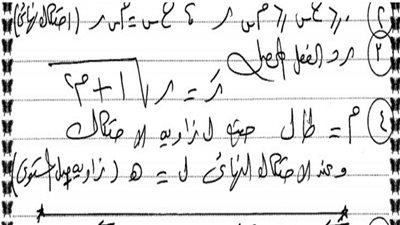 ٢) ٠ ≤ ع س ≤ م س ر ، ع س = م س ر (احتكاك نهائى)
٣) رد الفعل المحصل
رَ = ر √١ + م٢
٤) م = ظا ل حيث ل زاويه الاحتكاك
وعند الاحتكاك النهائى ل = ه (زاويه ميل المستوى)